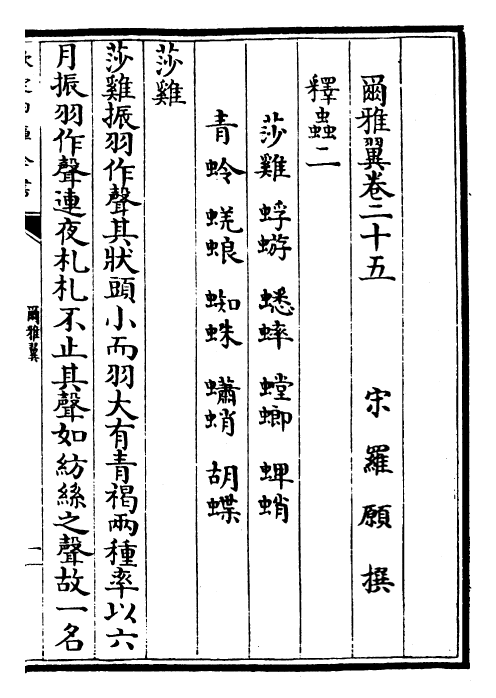 爾雅翼卷二十五
宋羅願撰
釋蟲二
莎雞 蜉蝣 蟋蟀 螳螂 蜱蛸
青蛉 蜣蜋 蜘蛛 蠨蛸 胡蝶
莎雞
莎雞振羽作聲其狀頭小而羽大有青褐兩種率以六
月振羽作聲連夜札札不止其聲如紡絲之聲故一名
爾雅翼